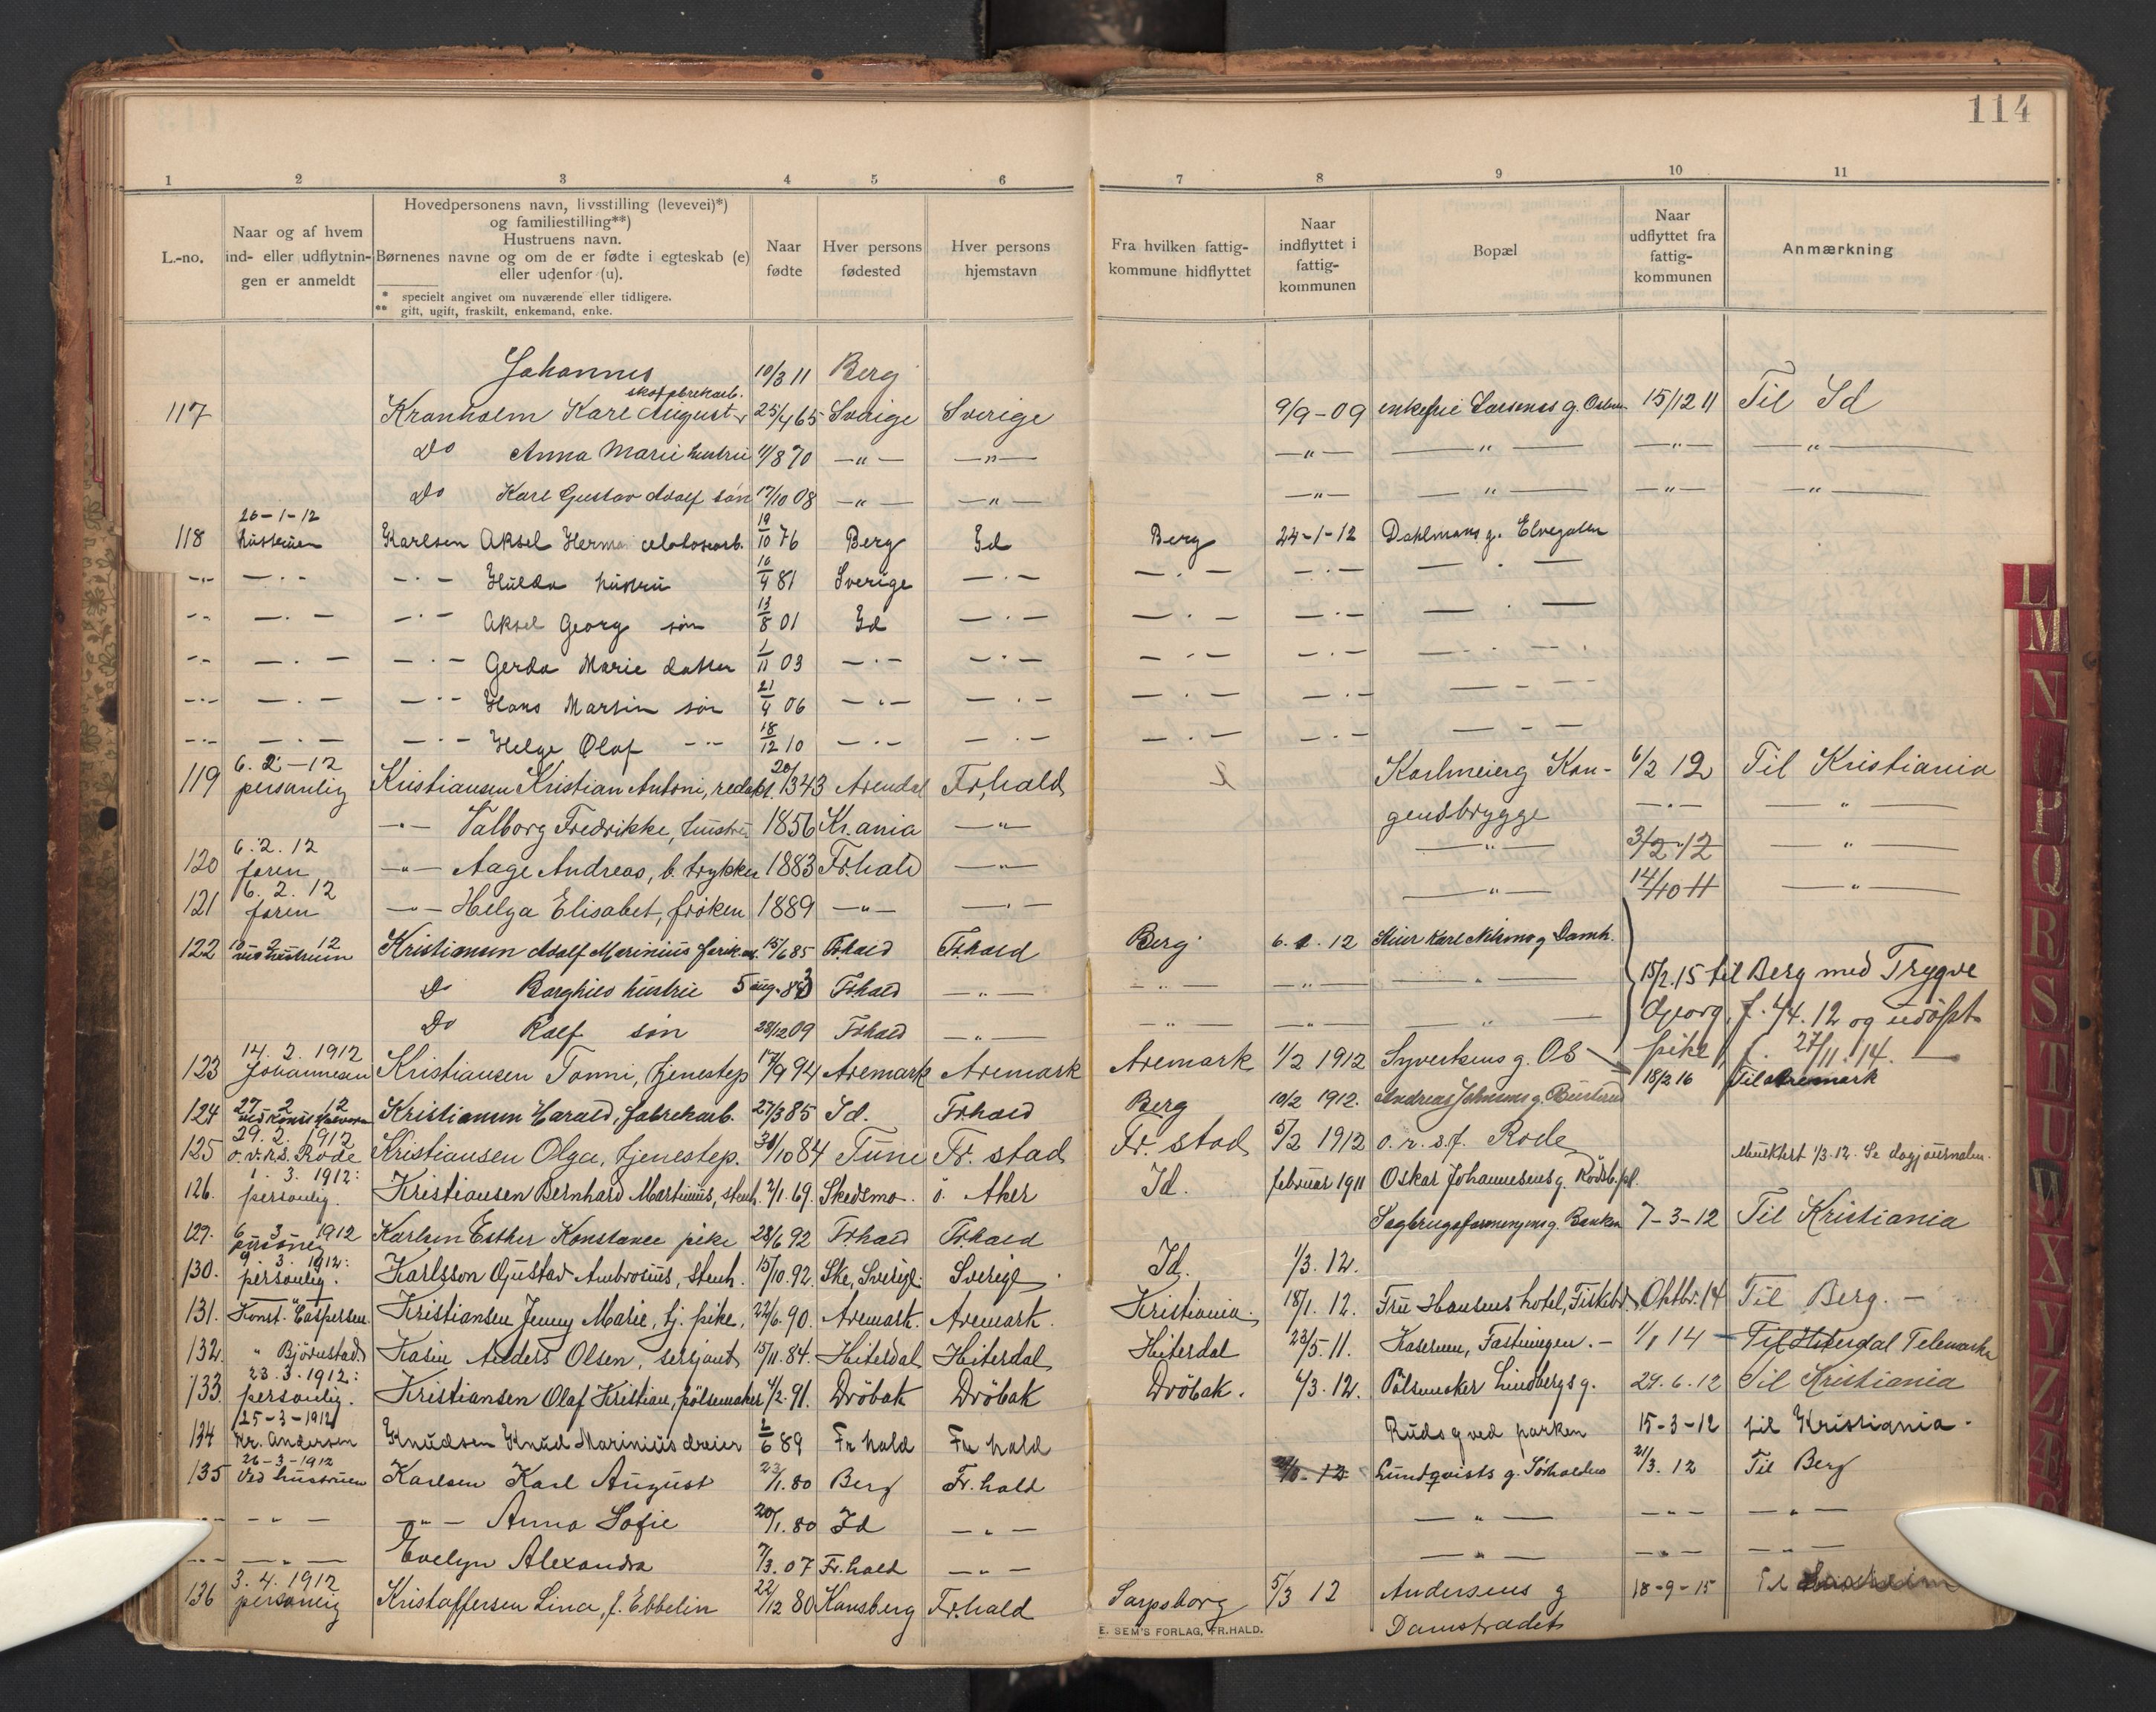 114
1 2 3 4 5 6 7 8 9 10 11
L.-no.
Naar og af hvem
ind- eller udflytnin-
gen er anmeldt
Hovedpersonens navn, livsstilling (levevei)*)
og familiestilling**)
Hustruens navn.
Børnenes navne og om de er fødte i egteskab (e)
eller udenfor (u).
* specielt angivet om nuværende eller tidligere.
** gift, ugift, fraskilt, enkemand, enke.
Naar
fødte
Hver persons
fødested
Hver persons
hjemstavn
Fra hvilken fattig-
kommune hidflyttet
Naar
indflyttet i
fattig-
kommunen
Bopæl
Naar
udflyttet fra
fattig-
kommunen
Anmærkning
Johannes 10/3 11 Berg
117 Kranholm Karl August 25/4 65 Sverige Sverige 9/9-09 enkefrue Larsens g. 15/12 11 Til Id
Do Anna Marie hustru 11/8 70 —"— —"— —"— —"— —"— —"—
Do Karl Gustav Adolf søn 17/10 08 —"— —"— —"— —"— —"— —"—
26-1-12
118 hustruen Karlsen Aksel Herman 19/10 76 Berg Id Berg 24-1-12 Dahlmans g. Elvegaten
-"- —"— —"— Hulda hustru 10/4 81 Sverige —"— —"— —"— —"—
-"- —"— —"— Aksel Georg søn 13/8 01 Id —"— —"— —"— —"—
-"- —"— —"— Gerda Marie datter 1/11 03 —"— —"— —"— —"—
-"- —"— —"— Hans Martin søn 21/4 06 —"— —"— —"— —"— —"—
-"- —"— —"— Helge Olaf -"- 18/12 10 —"— —"— —"— —"— —"—
6. 2-12
119 personlig Kristiansen Kristian Antoni, redakt. 20/1 343 Arendal Fr.hald Karlmeierg Kon- 6/2 12 Til Kristiania
—"— Valborg Fredrikke, hustru 1856 Kr.ania —"— gensbrygge —"— —"—
6. 2. 12
120 faren —"— Aage Andreas, b. trykker 1883 Fr.hald —"— —"— 3/2-12 —"—
6. 2. 12
121 faren —"— Helga Elisabet, frøken 1889 —"— —"— —"— 14/10 11 —"—
122 ved hustruen Kristiansen Adolf Marinius 15/6 85 Frhald Frhald Berg 6. 2. 12 Karl Nilsens g Damh.
Do Borghild hustru 5 aug. 83 Frhald —"— —"— —"— —"— 15/2.15 til Berg med Trygve
Do Ralf søn 28/12 09 Frhald —"— —"— —"— —"— Georg, f. 4/4. 12 og udøpt
14. 2. 1912 pike f. 27/11.14. —
123 Johannesen Kristiansen Tonni, tjenestep 17/9 94 Aremark Aremark Aremark 1/2 1912 Syvertsens g. Os 18/2 16 Til Aremark
27 2 12
124 Kristiansen Harald, fabrikarb. 27/3 85 Id. Frhald Berg 10/2 1912. Andreas Johnsens g.
29. 2. 1912
125 o.v.r.s. Rode Kristiansen Olga, tjenestep. 30/10 84 Tune Fr. stad Fr. stad 5/2 1912 o. r. s.f. Rode
1. 3. 1912:
126. personlig. Kristiansen Bernhard Martinius, stenh. 2/1. 69. Skedsmo. ö. Aker Id. februar 1911 Oskar Johannesens g. Rödsb.pl. 1/3.12. Se dagjournalen.
6 3 1912
129. Karlsen Esther Konstance pike 28/6 92 Frhald Frhald Sagbrugsforeningens g. Banken 7-3-12 Til Kristiania
9. 3. 1912:
130. personlig. Karlsson Gustav Ambrosius, stenh. 15/10. 92. Ske, Sverige. Sverige. Id. 1/3. 12.
131. Konst. Caspersen. Kristiansen Jenny Marie, tj. pike, 22/6. 90. Aremark. Aremark. Kristiania. 18/1. 12. Fru Hansens hotel, Fiskeb. Oktbr. 14 Til Berg. —
132. " Björnstad. Kasin Anders Olsen, sersjant 15/11. 84. Hiterdal Hiterdal Hiterdal 23/5. 11. Kasernen, Fastningen. — 1/1 14 — Til Hiterdal Telemarken
23. 3. 1912:
133. personlig. Kristiansen Olaf Kristian, pölsemaker 4/2. 91. Dröbak Dröbak Dröbak. 4/3. 12. Pölsemaker Lindbergs g. 24. 6. 12 Til Kristiania
25-3-1912
134 Kr. Andersen Knudsen Knud Marinius dreier 2/6 89 Fr hald Fr hald Ruds g ved parken 15-3-12 til Kristiania.
26-3-1912
135 Ved hustruen Karlsen Karl August 23/1. 80 Berg Fr. hald Lundqvists g. Sørhalden 21/3. 12 Til Berg
-"- —"— —"— Anna Sofie 20/1. 80 Id —"— —"— —"— —"—
-"- —"— Evelyn Alexandra 7/3. 07 Fr.hald —"— —"— —"— —"—
3. 4. 1912
136 personlig Kristoffersen Lina, f. Ebbelin 22/12 80 Konsberg Fr.hald Sarpsborg 5/3 12 Andersens g 18-9-15 Til
Damstrædet
E. SEM'S FORLAG, FR.HALD.
L
M
N
P
Q
R
S
T
U
W
X
Y
Z